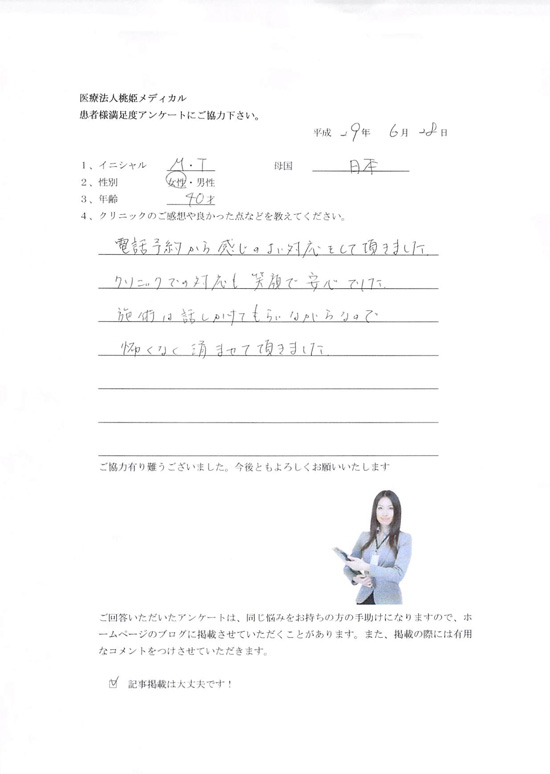 医療法人桃姫メディカル
患者様満足度アンケートにご協力下さい。
平成 29年 6月 28日
1、イニシャル M・T 母国 日本
2、性別 女性・男性
3、年齢 40才
4、クリニックのご感想や良かった点などを教えてください。
電話予約から感じのよい対応をして頂きました。
クリニックでの対応も笑顔で安心でした。
施術は話しかけてもらいながらなので
怖くなく済ませて頂きました。
ご協力有り難うございました。今後ともよろしくお願いいたします
ご回答いただいたアンケートは、同じ悩みをお持ちの方の手助けになりますので、ホ
ームページのブログに掲載させていただくことがあります。また、掲載の際には有用
なコメントをつけさせていただきます。
☑ 記事掲載は大丈夫です！